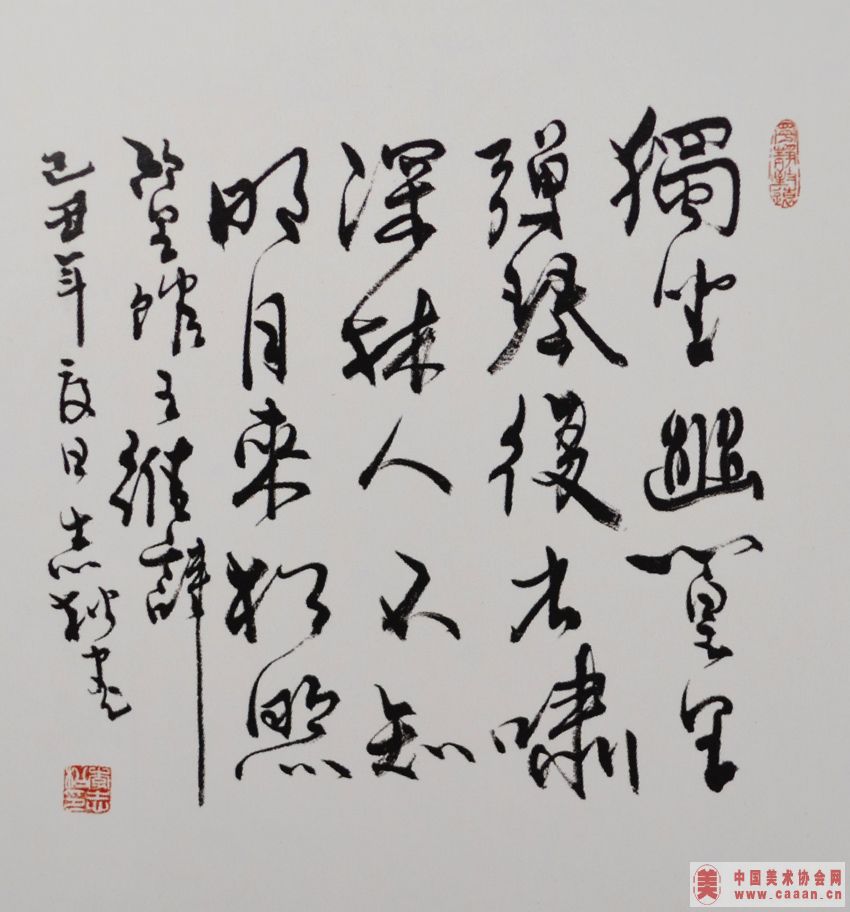 寧靜致遠
獨坐幽篁里
彈琴復長嘯
深林人不知
明月來相照
竹里館王維詩
己丑年夏日志書
中国美术协会网
www.caaan.cn